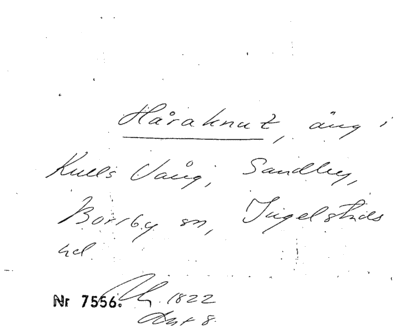 Håraknut, äng i
Kulls Vång, Sandby,
Borrby sn, Ingelstads
hd.
Nr 7556. 1822
Akt 8.